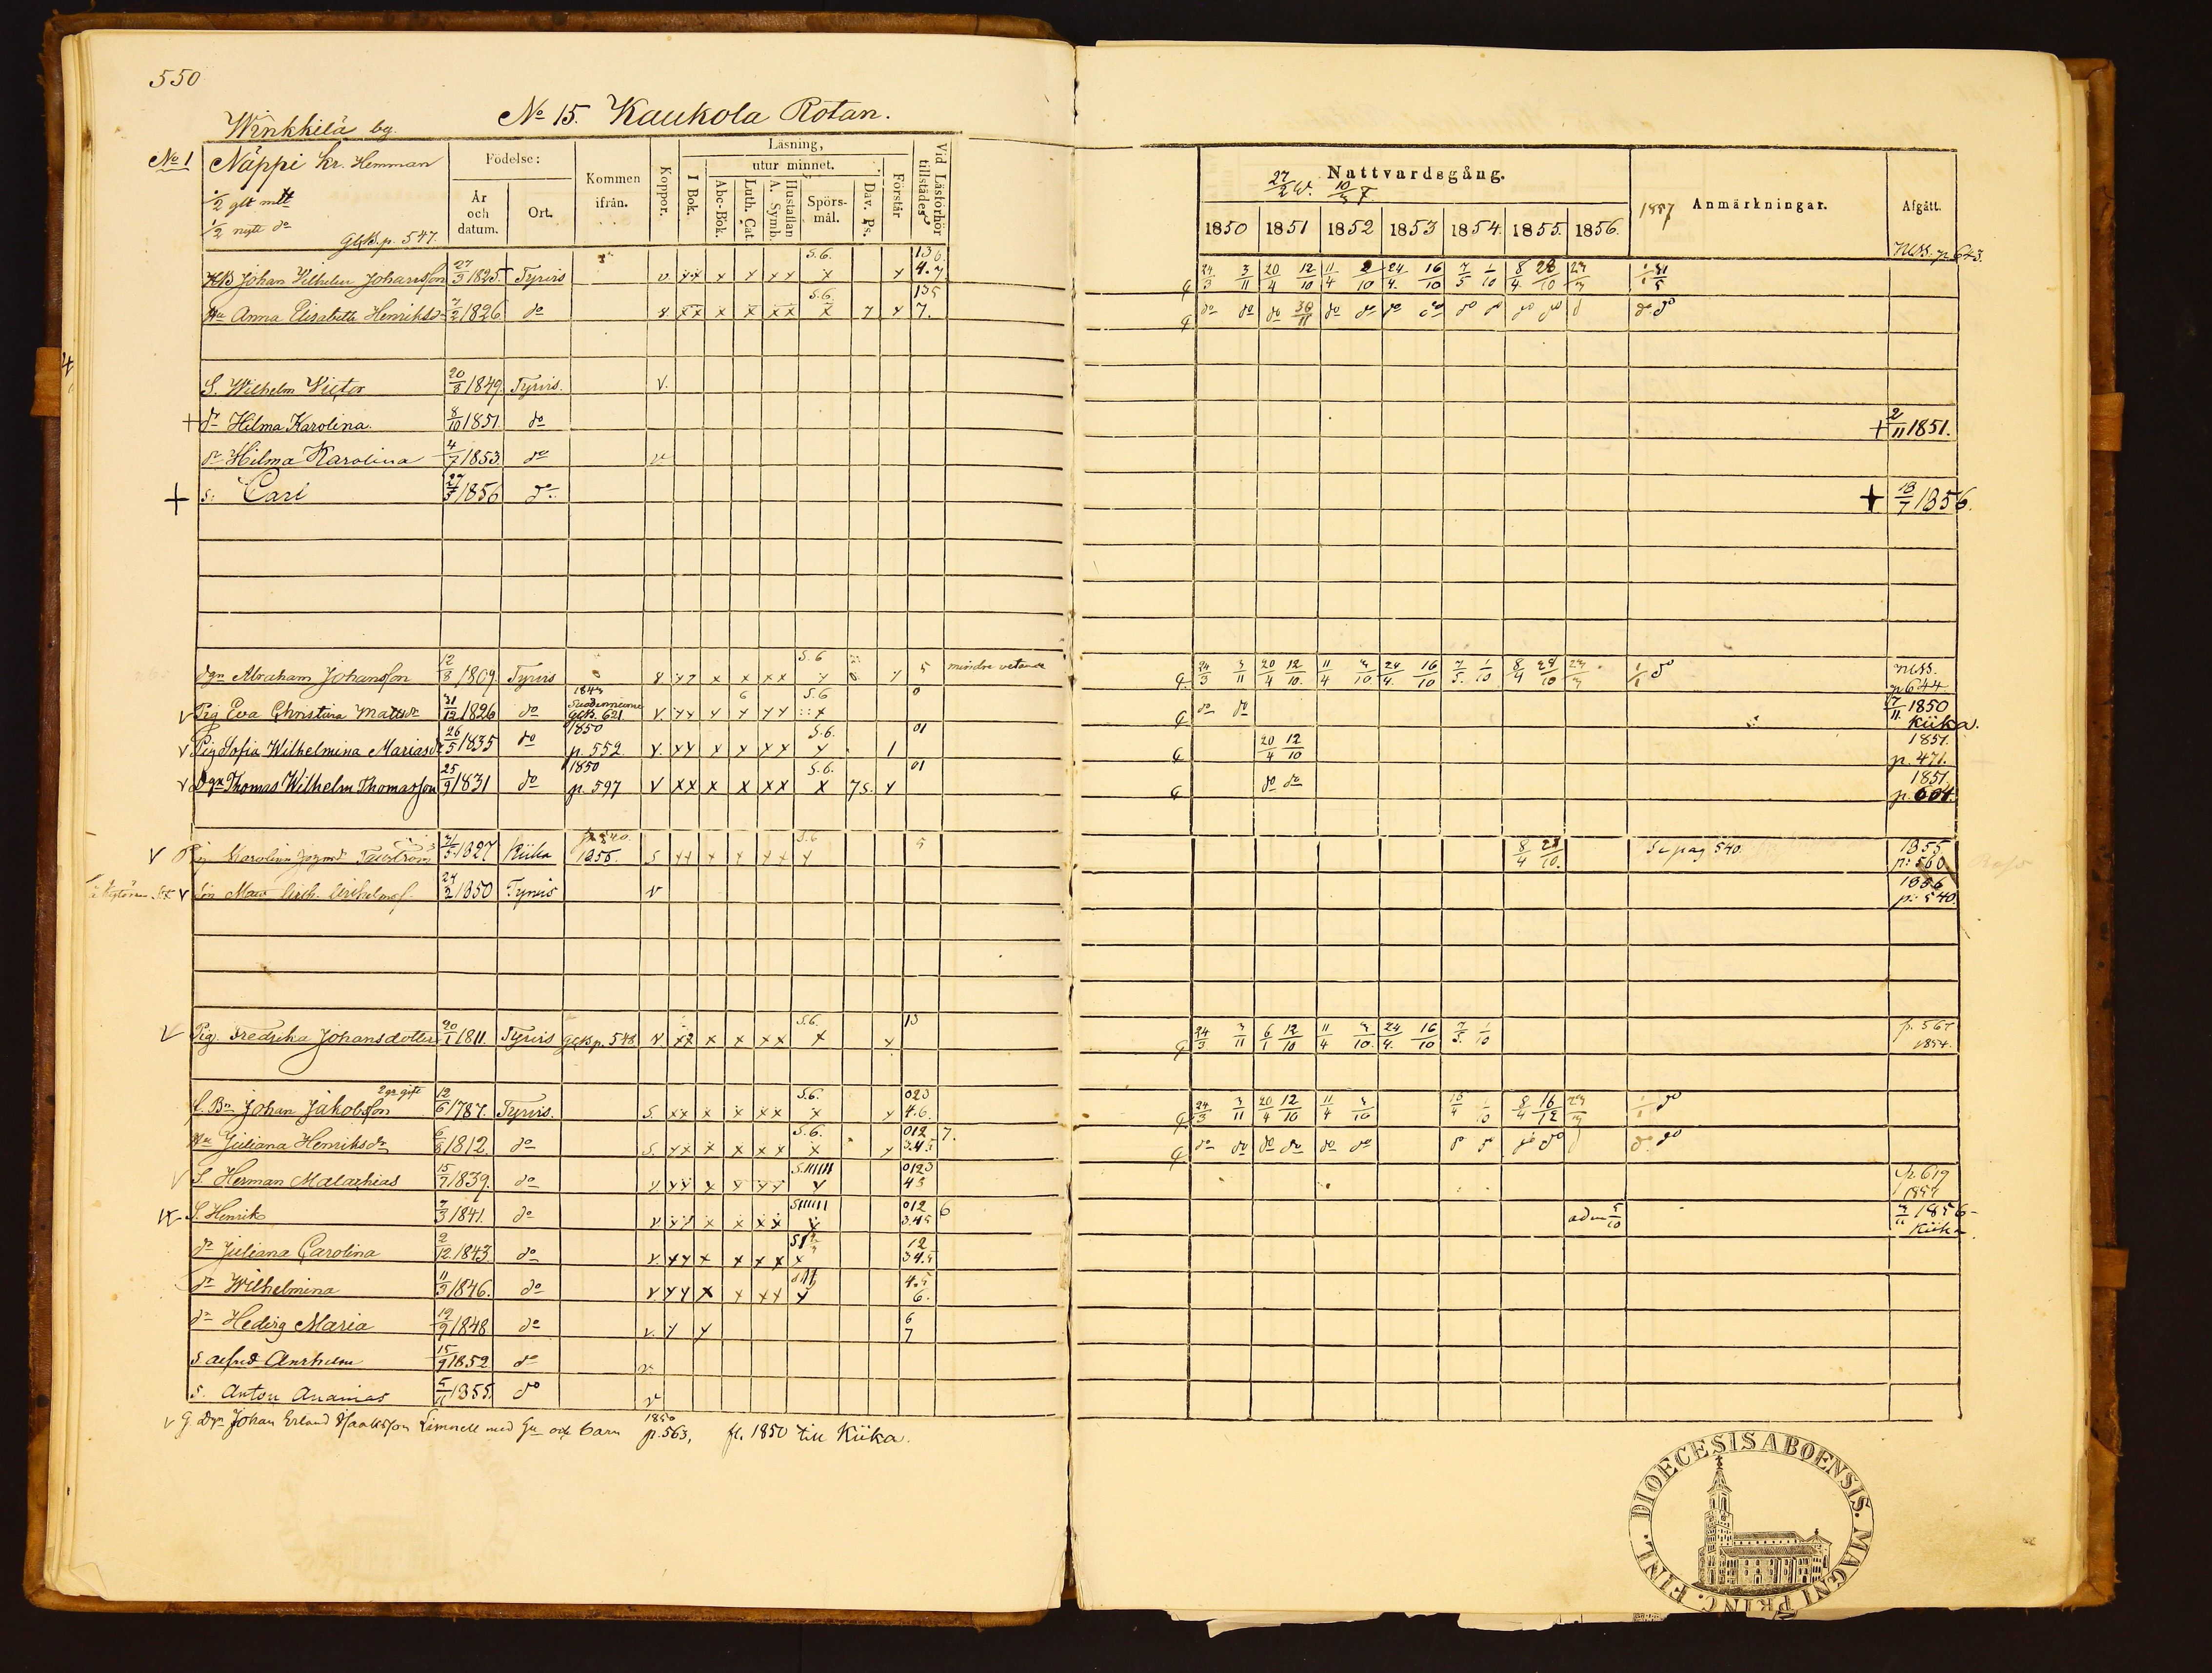 550
Winkkilä by. No 15. Kaukola Rotan.
No 1 Näppi Kr. Hemman
1/2 glt mtt
1/2 nytt do
GlKB. p. 547.
Födelse:
År och datum.
Ort.
Kommen ifrån.
Koppor.
Läsning,
I Bok.
utur minnet.
Abc-Bok.
Luth. Cat.
Hustaflan A. Symb.
Spörsmål.
Dav. Ps.
Förstår
Vid Läsförhör tillstädes
Nattvardsgång.
27/2 W. 10/5 F.
1850 1851 1852 1853 1854. 1855. 1856.
1857 Anmärkningar.
Afgått.
NKB. p. 643.
Johan Wilhelm Johansson 27/9 1825. Tyrvis S.6. 136 4.7
24/3 3/11 20/4 12/10 11/4 24/4. 16/10 7/5 1/10 8/4. 28/10
Hu Anna Elisabeth Henriksdr 7/2 1826 do S.6. 135 7.
do do do 30/11 do do do do do do do do do do
S. Wilhelm Victor 20/8 1849. Tyrvis. v.
+ dr Hilma Karolina. 8/10 1851 do + 2/11 1851.
dr Hilma Karolina 4/7 1853. do v.
+ s. Carl 27/5 1856 do + 18/7 1856.
Dgn Abraham Johansson 12/8 1809 Tyrvis S.6 5 mindre vetande
24/3 3/11 20/4 12/10. 11/4 3/10 24/4. 16/10 7/5. 1/10 8/4 28/10 NKB. p 644
v Pig Eva Christina Mattsdr 31/12 1826 do 1843 GlKB. 621 S.6 0
do do 7/11 1850 Kiika.
v Pig Sofia Wilhelmina Mariasdr 26/5 1835 do 1850 p. 552 S.6. 01
20/4 12/10 1851. p. 471.
v Dgn Thomas Wilhelm Thomasson 25/9 1831 do 1850 p. 597 S.6. 7 s. 01
do do 1851. p. 604.
v Pig Karolina 1827 Kiika p 540 1855. S.6 5
8/4 28/10. Se pag 540. 1855 p: 560
v 24/2 1850 Tyrvis v
1856 p: 540.
Pig. Fredrika Johansdotter 20/1 1811. Tyrvis GlKB p. 548 S.6. 13
24/3 3/11 6/1 12/10 11/4 3/10. 24/4. 16/10 7/5. 1/10 p. 567 1854.
2gr gift
f. Bn Johan Jakobsson 12/6 1787. Tyrvis. S.6. 023 4.6.
24/3 3/11 20/4 12/10 11/4 3/10 8/4 16/12 do
Hu Juliana Henriksdr 6/8 1812. do S.6. 012 3.45 7.
do do do do do do do do do do do do
v S. Herman Malachias 15/7 1839. do 0123 45
p. 619 1857
S. Henrik 7/3 1841. do 012 3.45 6
adm 5/10 1856 Kiika
dr Juliana Carolina 2/12 1843 do 12 34.5
dr Wilhelmina 11/3 1846. do 4.5 6.
dr Hedvig Maria 19/9 1848 do 6 7
s Alfred Anshelm 15/9 1852 do v
s. Anton Ananias 5/11 1855. do v
v G. Dgn Johan Erland Limnell med Hu och barn 1850 p. 563, fl. 1850 till Kiika.
FINL. DIOECESIS ABOENSIS. MAGNI PRINC.